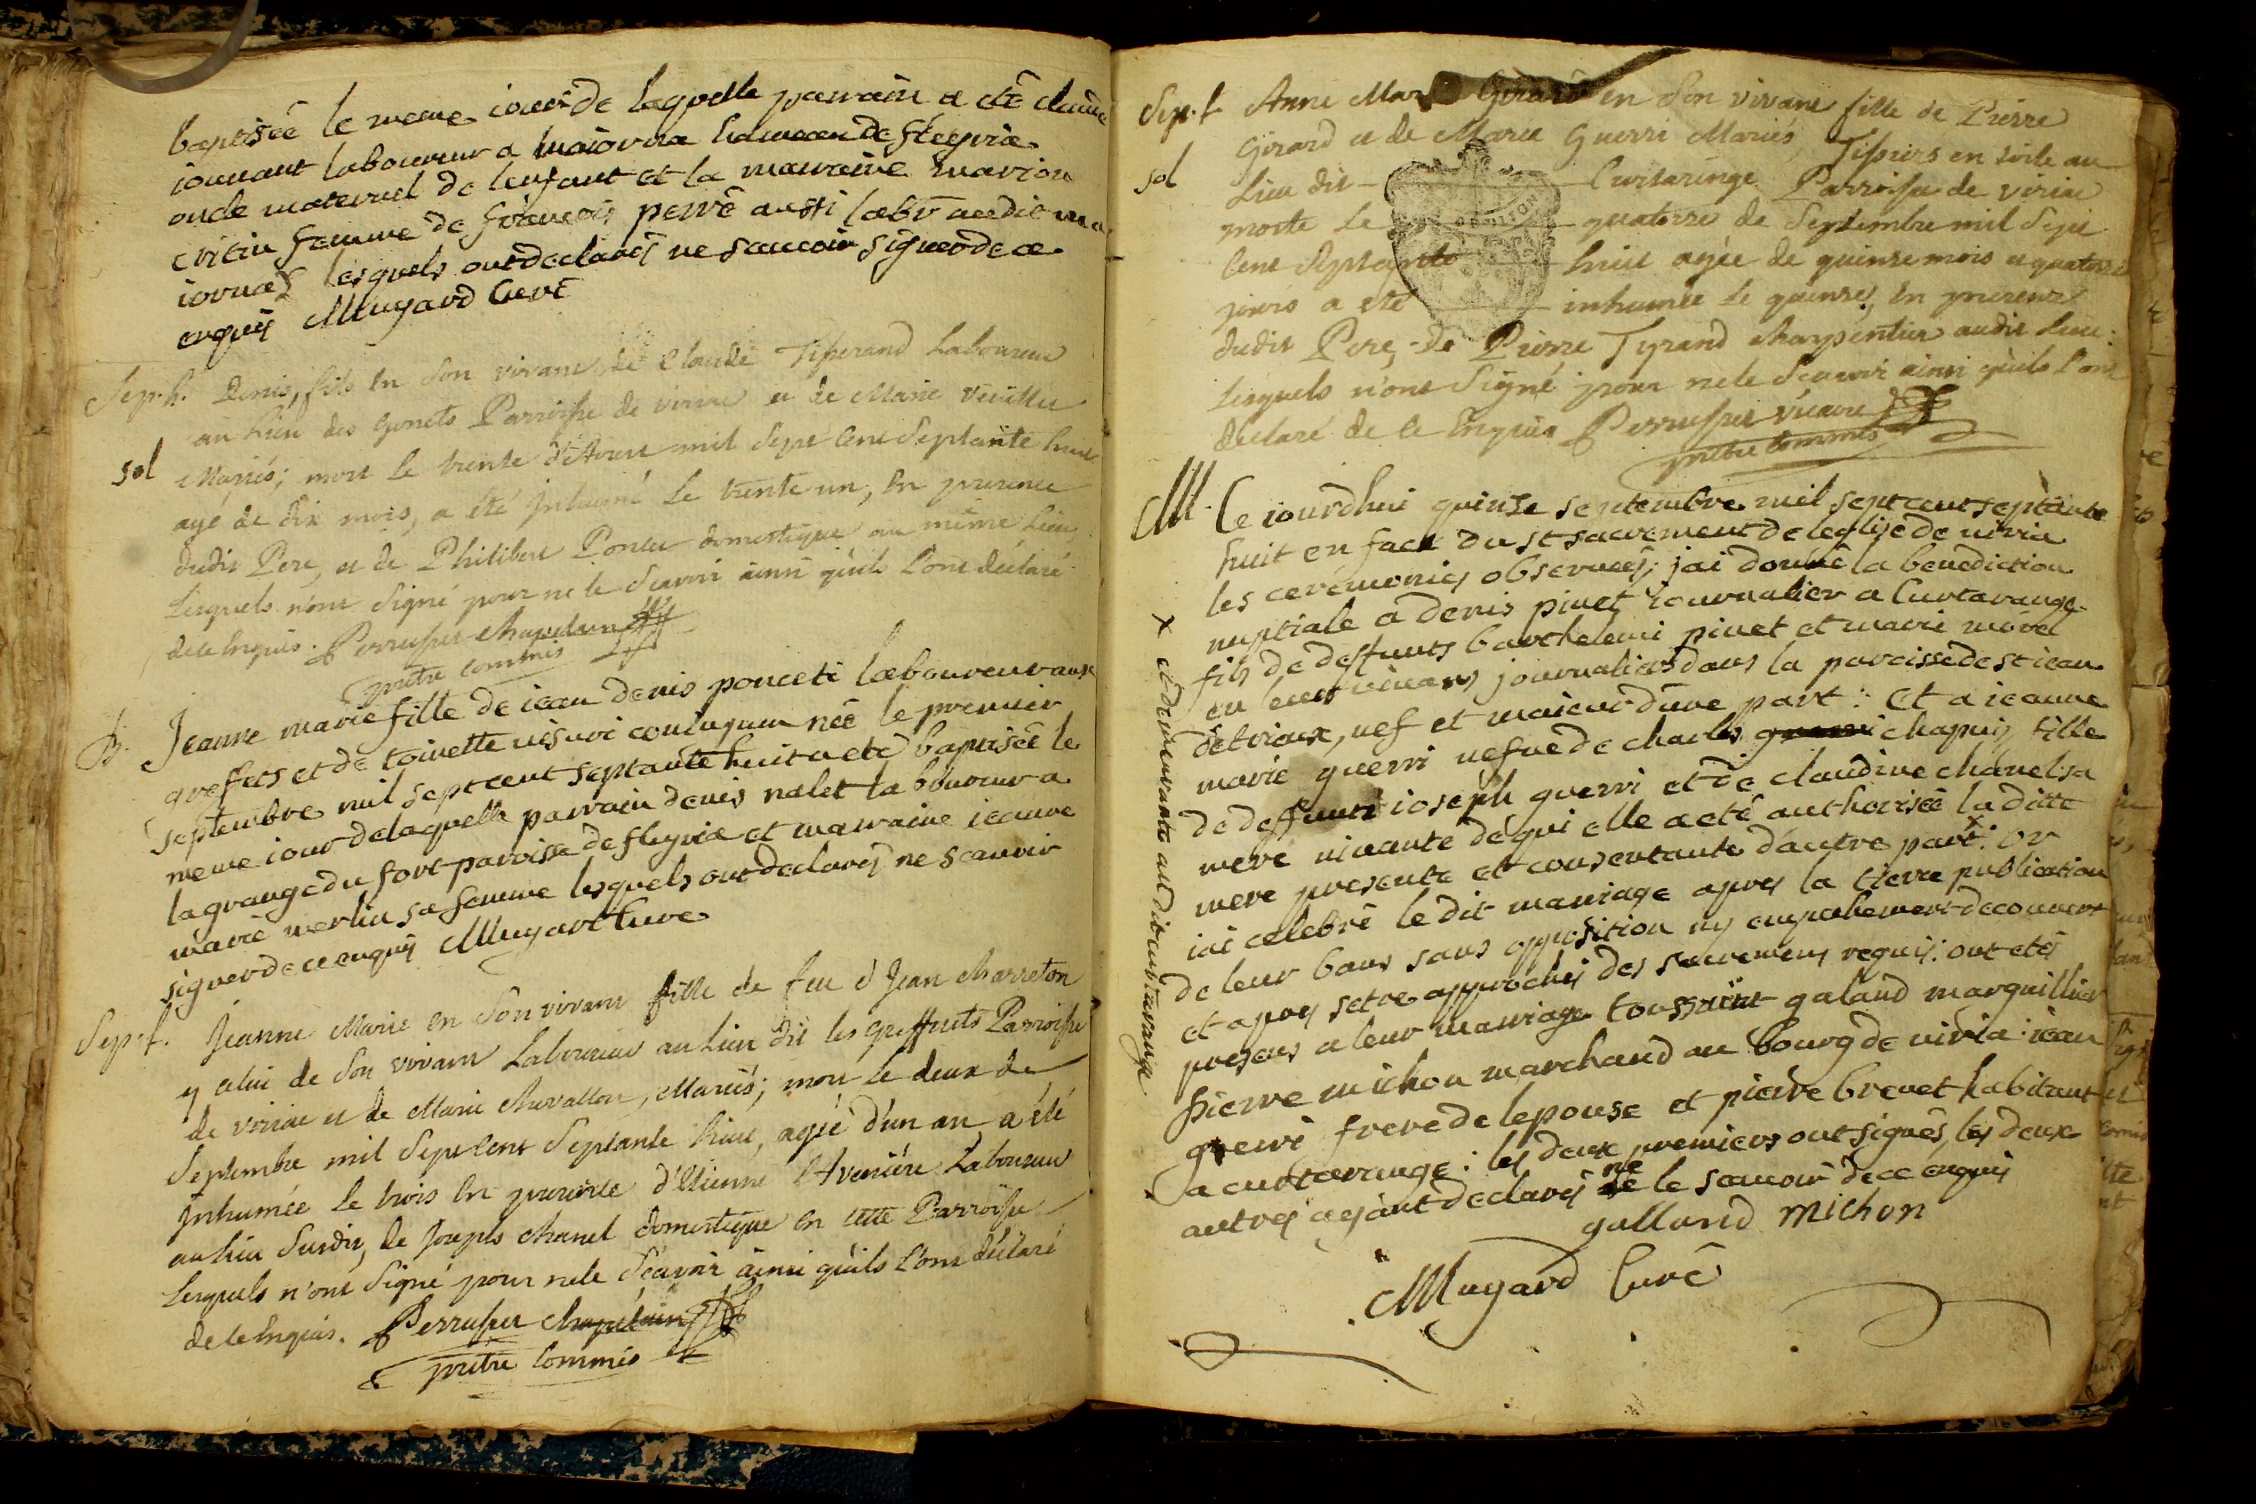 baptisée le meme jour de laquelle parrain a été claude
iouvant laboureur a maiornas hameau de fleyria
oncle maternel de lenfant et la marraine marion
femme de françois perré aussi labr audit ma
iornas lesquels ont declarés ne scauoir signer de ce
enquis Mugard Curé
Sept.h. Denis, fils en son vivant, de Claude Tisserand Laboureur
au Lieu des Genets Parroisse de viriac et de Marie Veuillet
sol Mariés; mort le trente d'Aoust mil sept cent septante huit
agé de dix mois, a été Inhumé le trente un, en presence
dudit Pere, et de Philibert Poncet domestique au même Lieu,
Lesquels n'ont signé pour ne le scavoir ainsi qu'ils l'ont déclaré
de ce Enquis. Perrusset chapelain
pretre commis
B. Jeanne marie fille de iean denis poncet laboureur aux
greffets et de toinette coniugaux née le premier
septembre mil sept cent septante huit a eté baptisée le
meme iour de laquelle parrain denis nalet laboureur a
la grange du fort paroisse de fleyria et marraine ieanne
marie merlin sa femme lesquels ont declarés ne scauoir
signer de ce enquis Mugard Curé
Sept.f. Jeanne Marie en son vivant fille de feu Jean Charreton
y celui de son vivant Laboureur au Lieu dit les greffets Parroisse
de viriac et de Marie Chevallon, Mariés; mort le deux de
Septembre mil Sept Cent Septante huit, agée d'un an, a été
inhumée le trois en presence d'Etienne Laboureur
au Lieu susdit, de Joseph Chanel domestique en cette Parroisse
Lesquels n'ont Signé pour ne le scavoir ainsi qu'ils l'ont déclaré
de ce Enquis. Perrusset chapelain
pretre Commis
Sept.f Anne Marie Girard en son vivant fille de Pierre
Girard et de Marie Guerri Mariés, Tissiers en toile au
sol Lieu dit Curtaringe Parroisse de viriac
morte le quatorze de Septembre mil Sept
Cent Septante huit agée de quinze mois et quatorze
jours a été inhumée le quinze, En presence
dudit Pere, de Pierre Tyrand charpentier audit Lieu:
Lesquels n'ont Signé pour ne le scavoir ainsi qu'ils l'ont
declaré de ce Enquis Perrusset vicaire
pretre commis
M. Ce iourdhui quinze septembre mil sept cent septante
huit en face du st sacrement de leglise de viria
les ceremonies observées; jai donné la benediction
nuptiale a denis pivet iournalier a Curtarange
fils de deffunts barthelemi pivet et marie morel
en leur vivans journaliers dans la paroisse de st iean
detrieux, nef et maieur d'une part: Et a ieanne
marie guerri vefue de charles chapuis fille
de deffunt ioseph guerri et de claudine chanel sa
mere vivante de qui elle a eté authorisée la ditte
mere presente et consentante d'autre part x: or
iai celebré le dit mariage apres la tierce publication
de leur bans sans opposition ny empechement decouvert
et apres setre approchés des sacremens requis: ont etés
presens a leur mariage toussaint galand marguillier
pierre michon marchand au bourg de viria: iean
guerri frere de lepouse et pierre brevet habitant
a curtarange: les deux premiers ont signés, les deux
autres ayant declarés ne le scauoir de ce enquis
galland Michon
Mugard Curé
x et demeurante audit curtarange